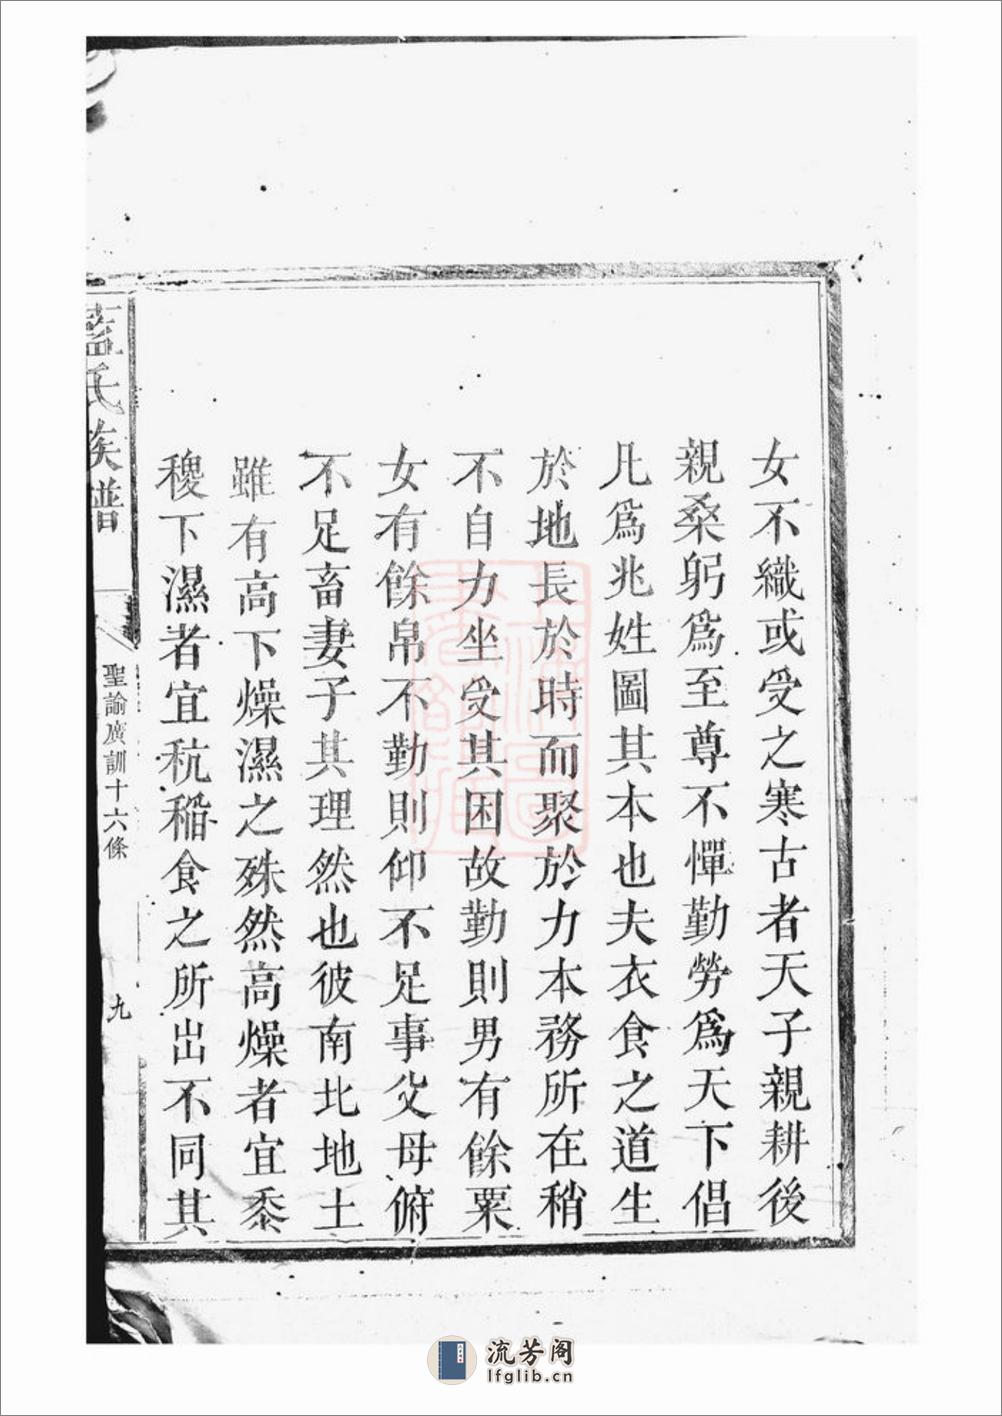 女不織或受之寒古者天子親耕後
親桑躬爲至尊不憚勤勞爲天下倡
凡爲兆姓圖其本也夫衣食之道生
於地長於時而聚於力本務所在稍
不自力坐受其困故勤則男有餘粟
女有餘帛不勤則仰不足事父母俯
不足畜妻子其理然也彼南北地土
雖有高下燥濕之殊然高燥者宜黍
稷下濕者宜秔稻食之所出不同其
藍氏族譜
聖諭廣訓十六條
九
流芳阁
lfglib.cn